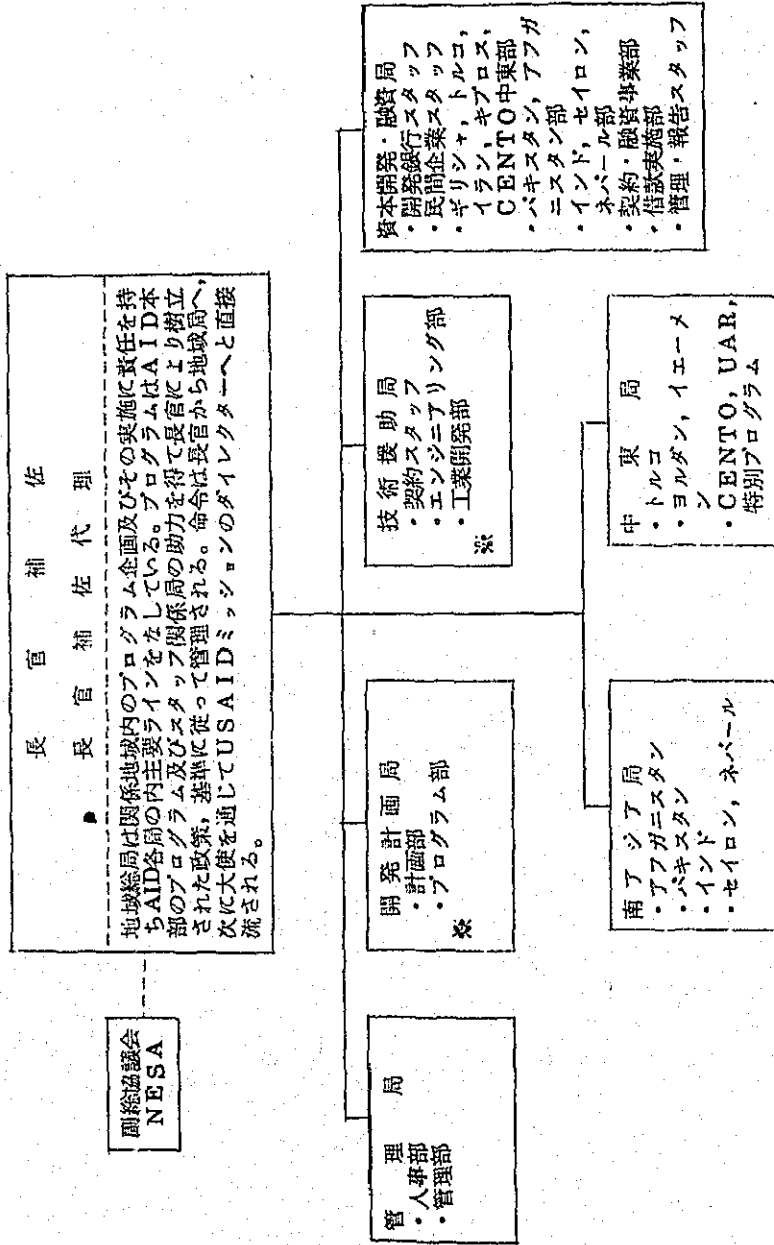 長官補佐
長官補佐代理
地域総局は関係地域内のプログラム企画及びその実施に責任を持
ちAID各局の内主要ラインをなしている。プログラムはAID本
部のプログラム及びスタッフ関係局の助力を得て長官により樹立
された政策，基準に従って管理される。命令は長官から地域局へ，
次に大使を通じてUSAIDミッションのダイレクターへと直接
流される。
副総協議会
NESA
管理局
・人事部
・管理部
開発計画局
・計画部
・プログラム部
※
技術援助局
・契約スタッフ
・エンジニアリング部
・工業開発部
※
資本開発・融資局
・開発銀行スタッフ
・民間企業スタッフ
・ギリシャ，トルコ，
イラン，キプロス，
CENTO中東部
・パキスタン，アフガ
ニスタン部
・インド，セイロン，
ネパール部
・契約・融資事業部
・借款実施部
・管理・報告スタッフ
南アジア局
・アフガニスタン
・パキスタン
・インド
・セイロン，ネパール
中東局
・トルコ
・ヨルダン，イエーメ
ン
・CENTO，UAR，
特別プログラム